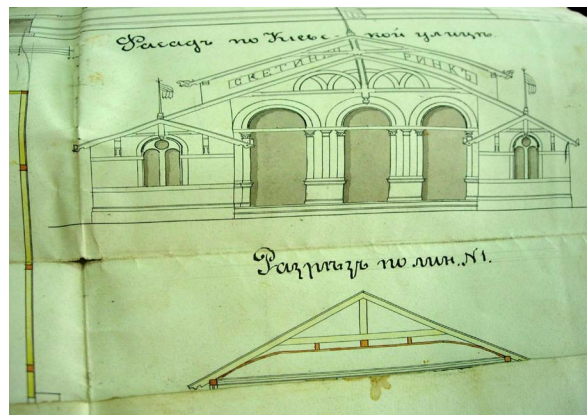 Фасадъ по Кіевс- кой улицѣ.
СКЕТИНГЪ РИНКЪ
Разрѣзъ по лин. №1.